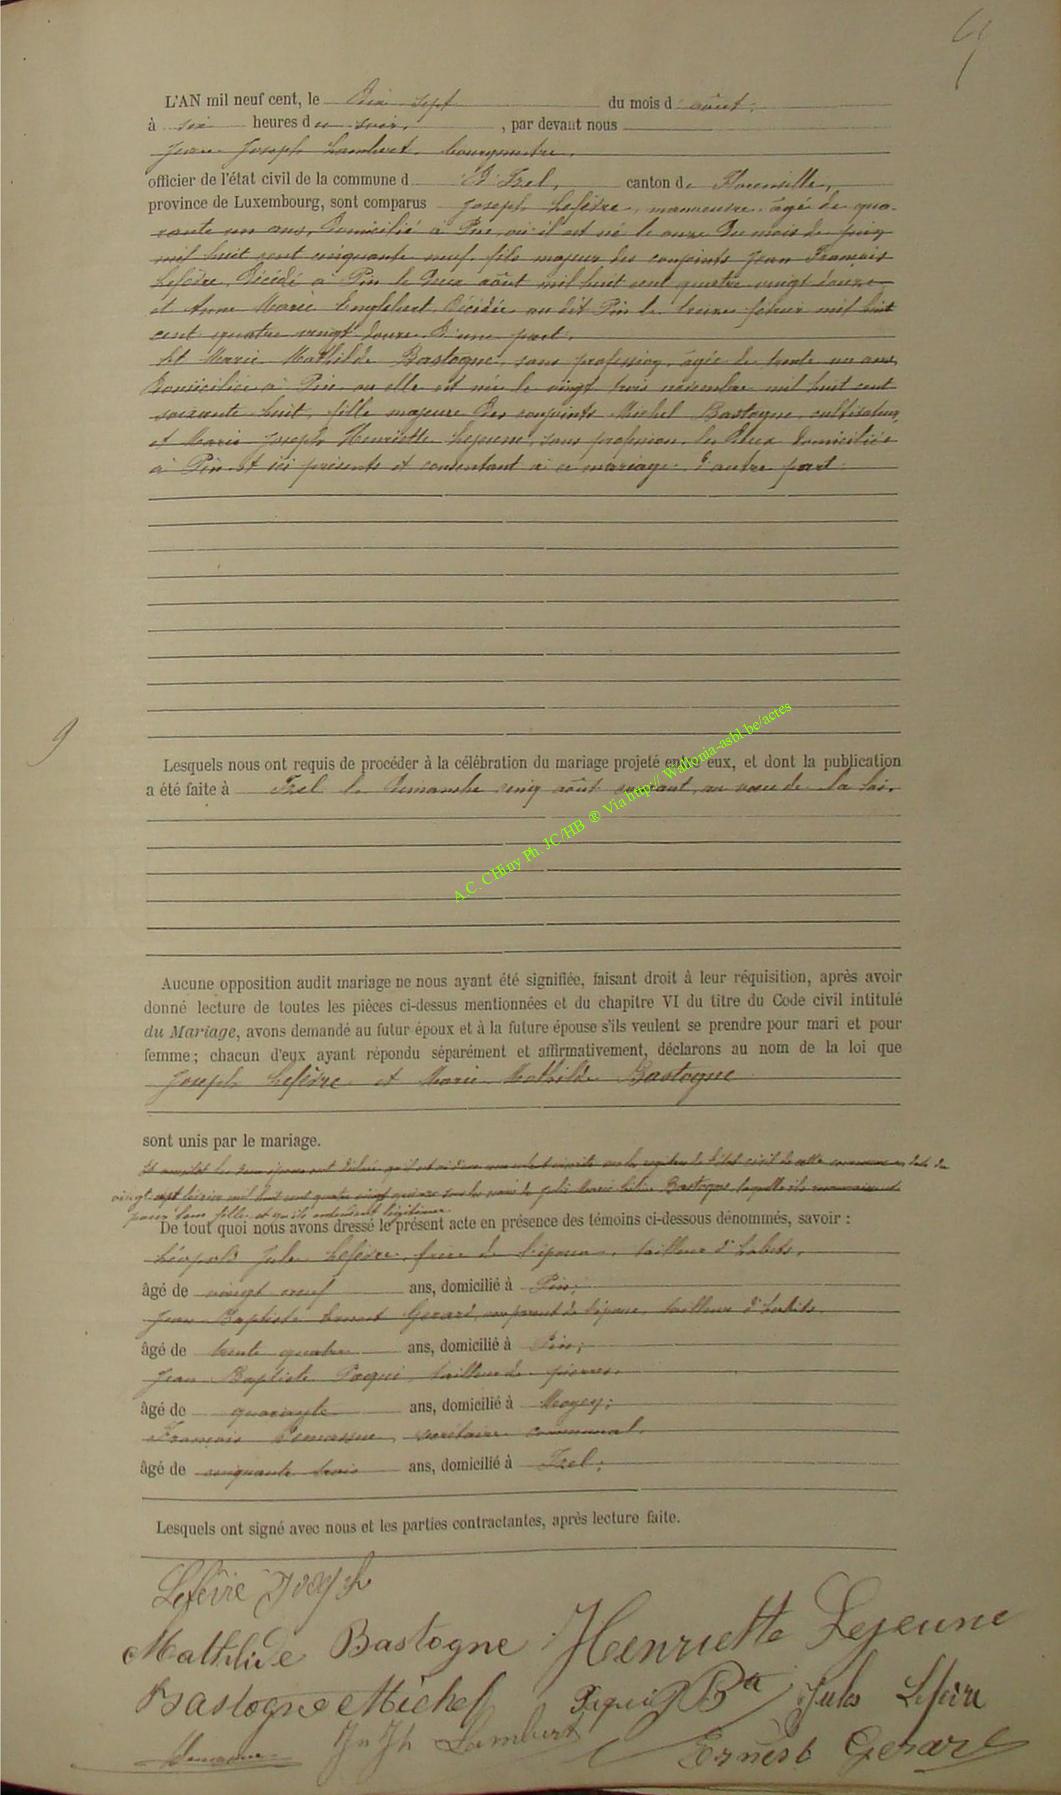 9
L'AN mil neuf cent, le Dix sept du mois d'août,
à six heures du soir, par devant nous
Jean Joseph Lambert, bourgmestre,
officier de l'état civil de la commune d'Izel, canton de Florenville,
province de Luxembourg, sont comparus Joseph Lefèvre, manœuvre, âgé de qua-
rante un ans, domicilié à Pin, où il est né le onze du mois de juin
mil huit cent cinquante neuf, fils majeur des conjoints Jean François
Lefèvre, décédé à Pin le deux août mil huit cent quatre vingt douze
et Anne Marie Englebert, décédée au dit Pin le treize février mil huit
cent quatre vingt douze d'une part;
Et Marie Mathilde Bastogne, sans profession, âgée de trente un ans,
domiciliée à Pin, où elle est née le vingt trois novembre mil huit cent
soixante huit, fille majeure des conjoints Michel Bastogne, cultivateur,
et Marie Joseph Henriette Lejeune, sans profession, les deux domiciliés
à Pin et ici présents et consentant à ce mariage d'autre part.
9
Lesquels nous ont requis de procéder à la célébration du mariage projeté entre eux, et dont la publication
a été faite à Izel le dimanche cinq août courant, au vœu de la loi.
A.C. CHiny Ph. JC/HB ® Via http:// Wallonia-asbl.be/actes
Aucune opposition audit mariage ne nous ayant été signifiée, faisant droit à leur réquisition, après avoir
donné lecture de toutes les pièces ci-dessus mentionnées et du chapitre VI du titre du Code civil intitulé
du Mariage, avons demandé au futur époux et à la future épouse s'ils veulent se prendre pour mari et pour
femme; chacun d'eux ayant répondu séparément et affirmativement, déclarons au nom de la loi que
Joseph Lefèvre et Marie Mathilde Bastogne
sont unis par le mariage.
Et aussitôt les deux époux ont déclaré qu'il est né d'eux une enfant inscrite sur les registres de l'état civil de cette commune en date du
vingt sept février mil huit cent quatre vingt quinze sous les noms de Marie Bastogne, laquelle ils reconnaissent
pour leur fille et qu'ils entendent légitimer.
De tout quoi nous avons dressé le présent acte en présence des témoins ci-dessous dénommés, savoir :
Léopold Jules Lefèvre, frère de l'époux, tailleur d'habits,
âgé de vingt neuf ans, domicilié à Pin;
Jean Baptiste Ernest Gerard, parent de l'épouse, tailleur d'habits
âgé de trente quatre ans, domicilié à Pin;
Jean Baptiste tailleur de pierres,
âgé de quarante ans, domicilié à Moyen;
François secrétaire communal,
âgé de cinquante trois ans, domicilié à Izel;
Lesquels ont signé avec nous et les parties contractantes, après lecture faite.
Lefèvre Joseph
Mathilde Bastogne Henriette Lejeune
Bastogne Michel Bte Jules Lefèvre
Jn Jh Lambert Ernest Gerard